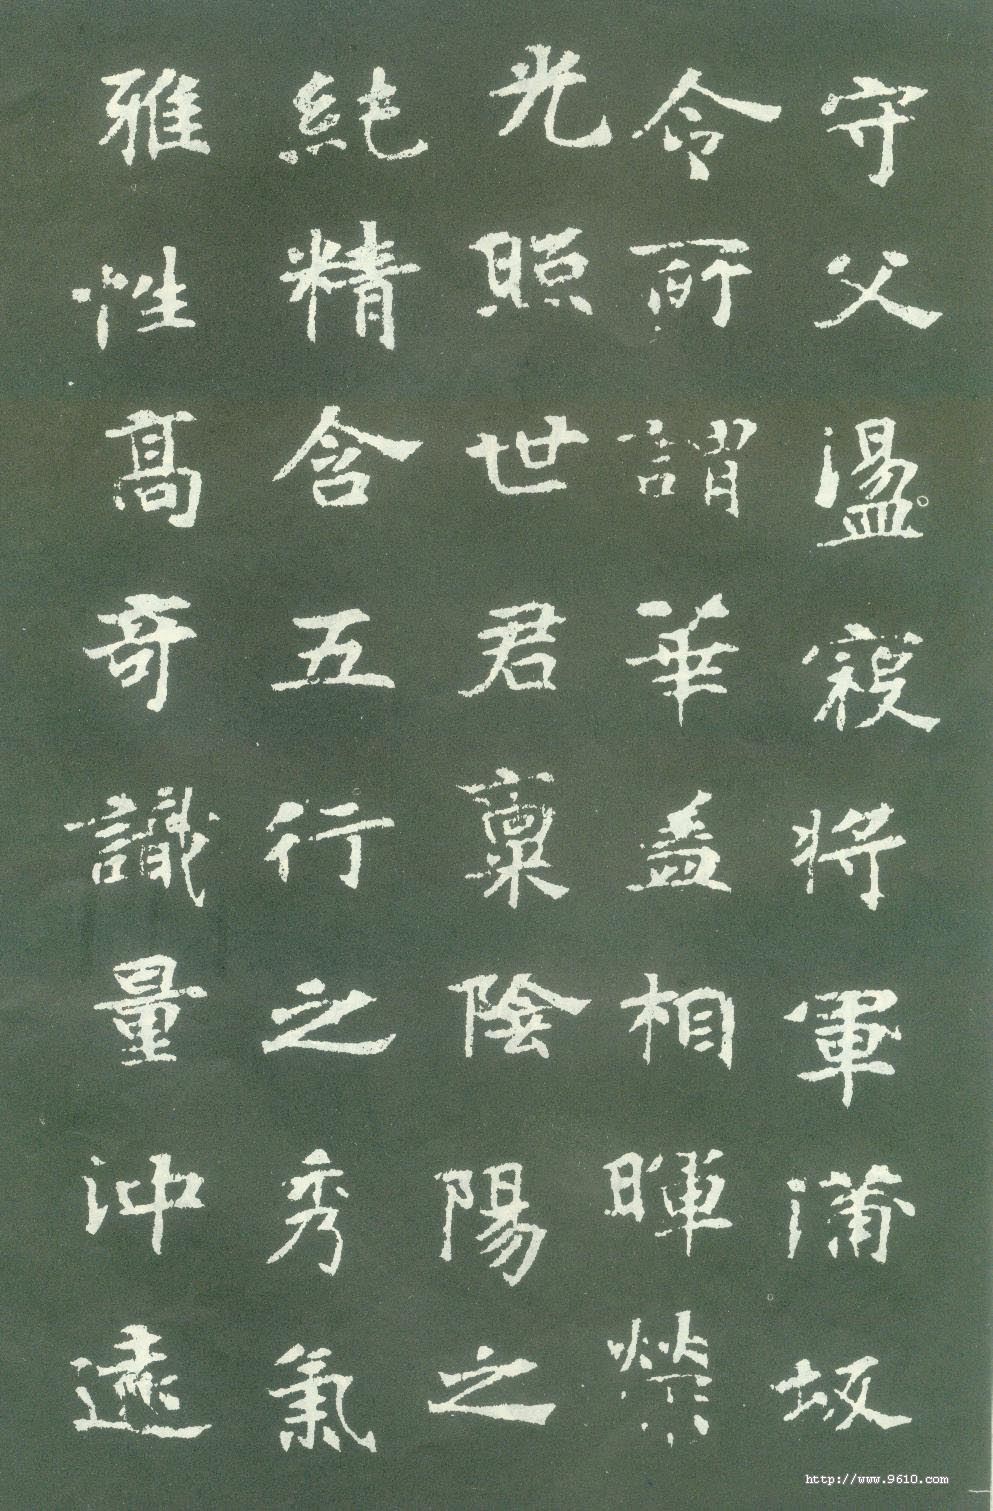 守父盪寇將軍蒲坂
令所謂華盖相暉榮
光照世君稟陰陽之
純精含五行之秀氣
雅性髙奇識量沖遠
http://www.9610.com